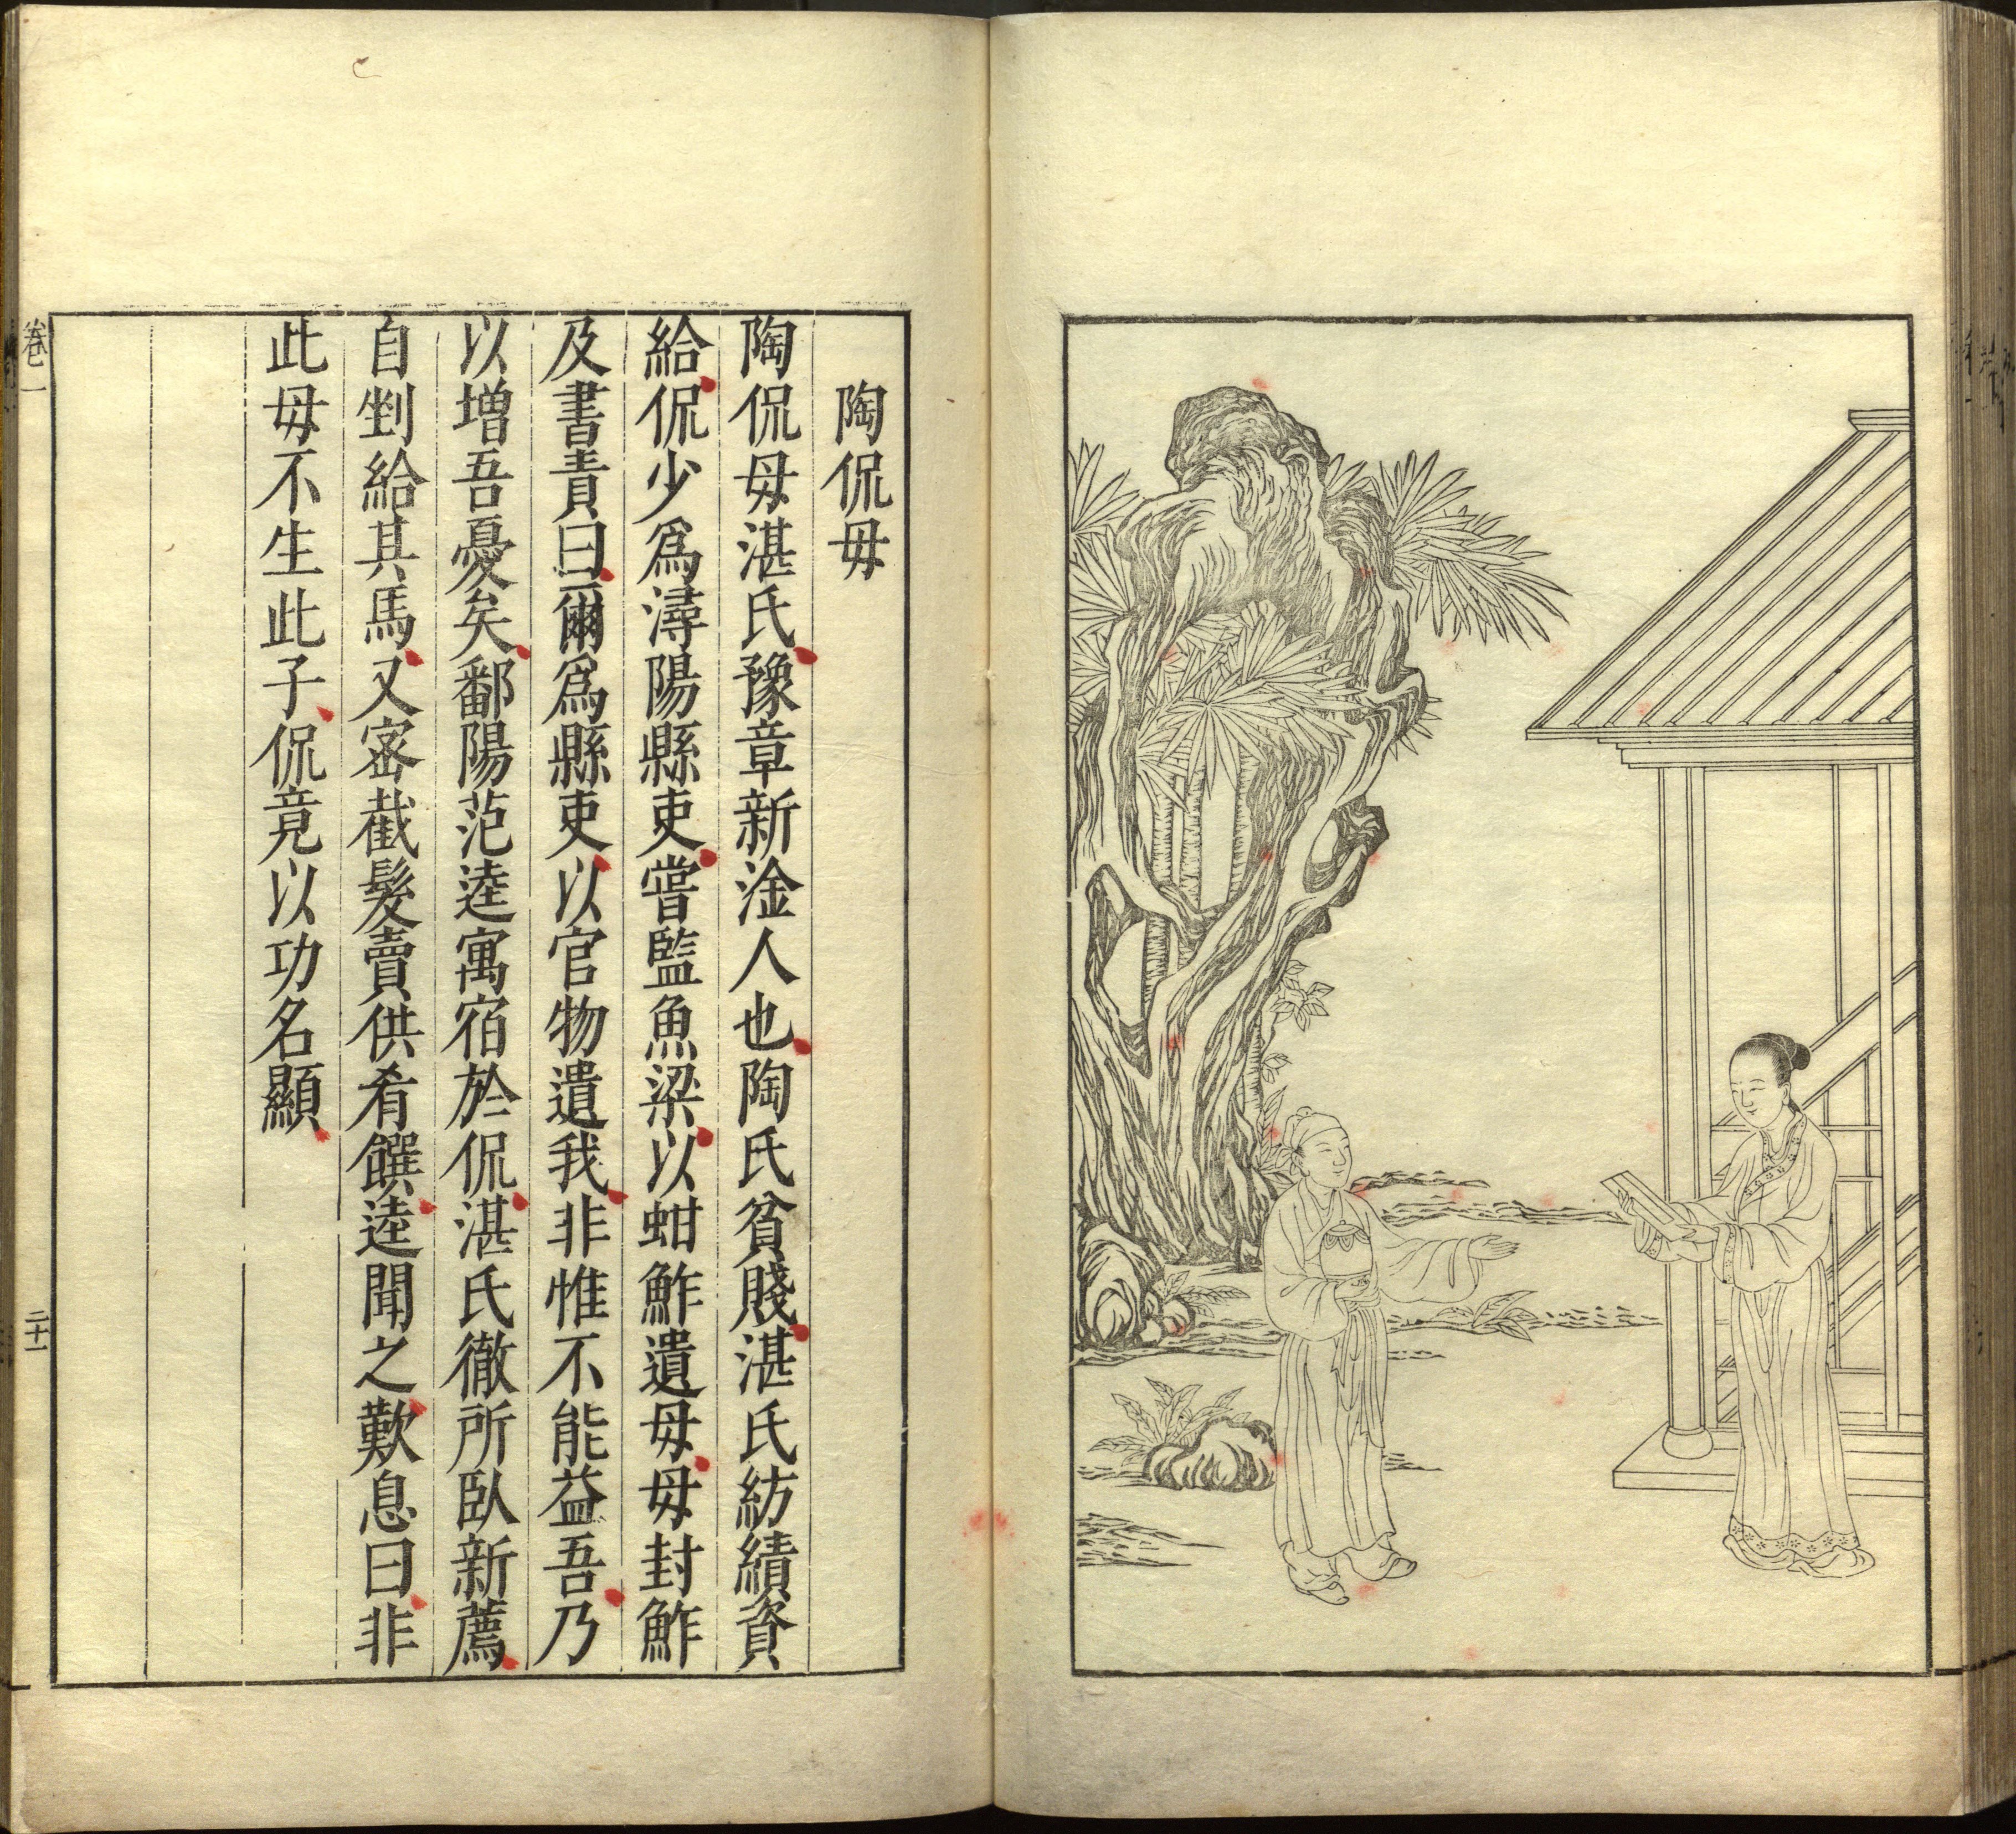 陶侃母
陶侃母湛氏豫章新淦人也陶氏貧賤湛氏紡績資
給侃少爲潯陽縣吏嘗監魚梁以蚶鮓遺母母封鮓
及書責曰爾爲縣吏以官物遺我非惟不能益吾乃
以增吾憂矣鄱陽范逵寓宿於侃湛氏徹所臥新薦
自剉給其馬又密截髮賣供肴饌逵聞之歎息曰非
此母不生此子侃竟以功名顯
卷一
二十一